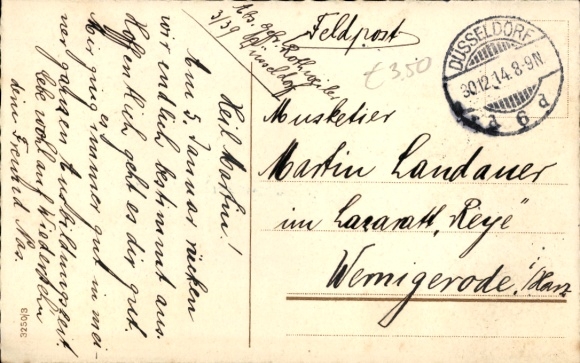 Abs. Gefr. Rothweiler
3/39 Düsseldorf
Feldpost
€ 3,50
DÜSSELDORF
30.12.14.8-9N.
Heil Martin!
Am 5. Januar rücken
wir endlich bestimmt aus.
Hoffentlich geht es dir gut.
Mir ging es immer gut in mei-
ner ganzen Ausbildungszeit
lebe wohl auf Wiedersehn
dein Freund
Musketier
Martin Landauer
im Lazarett "Reye"
Wernigerode i/Harz
3250/3